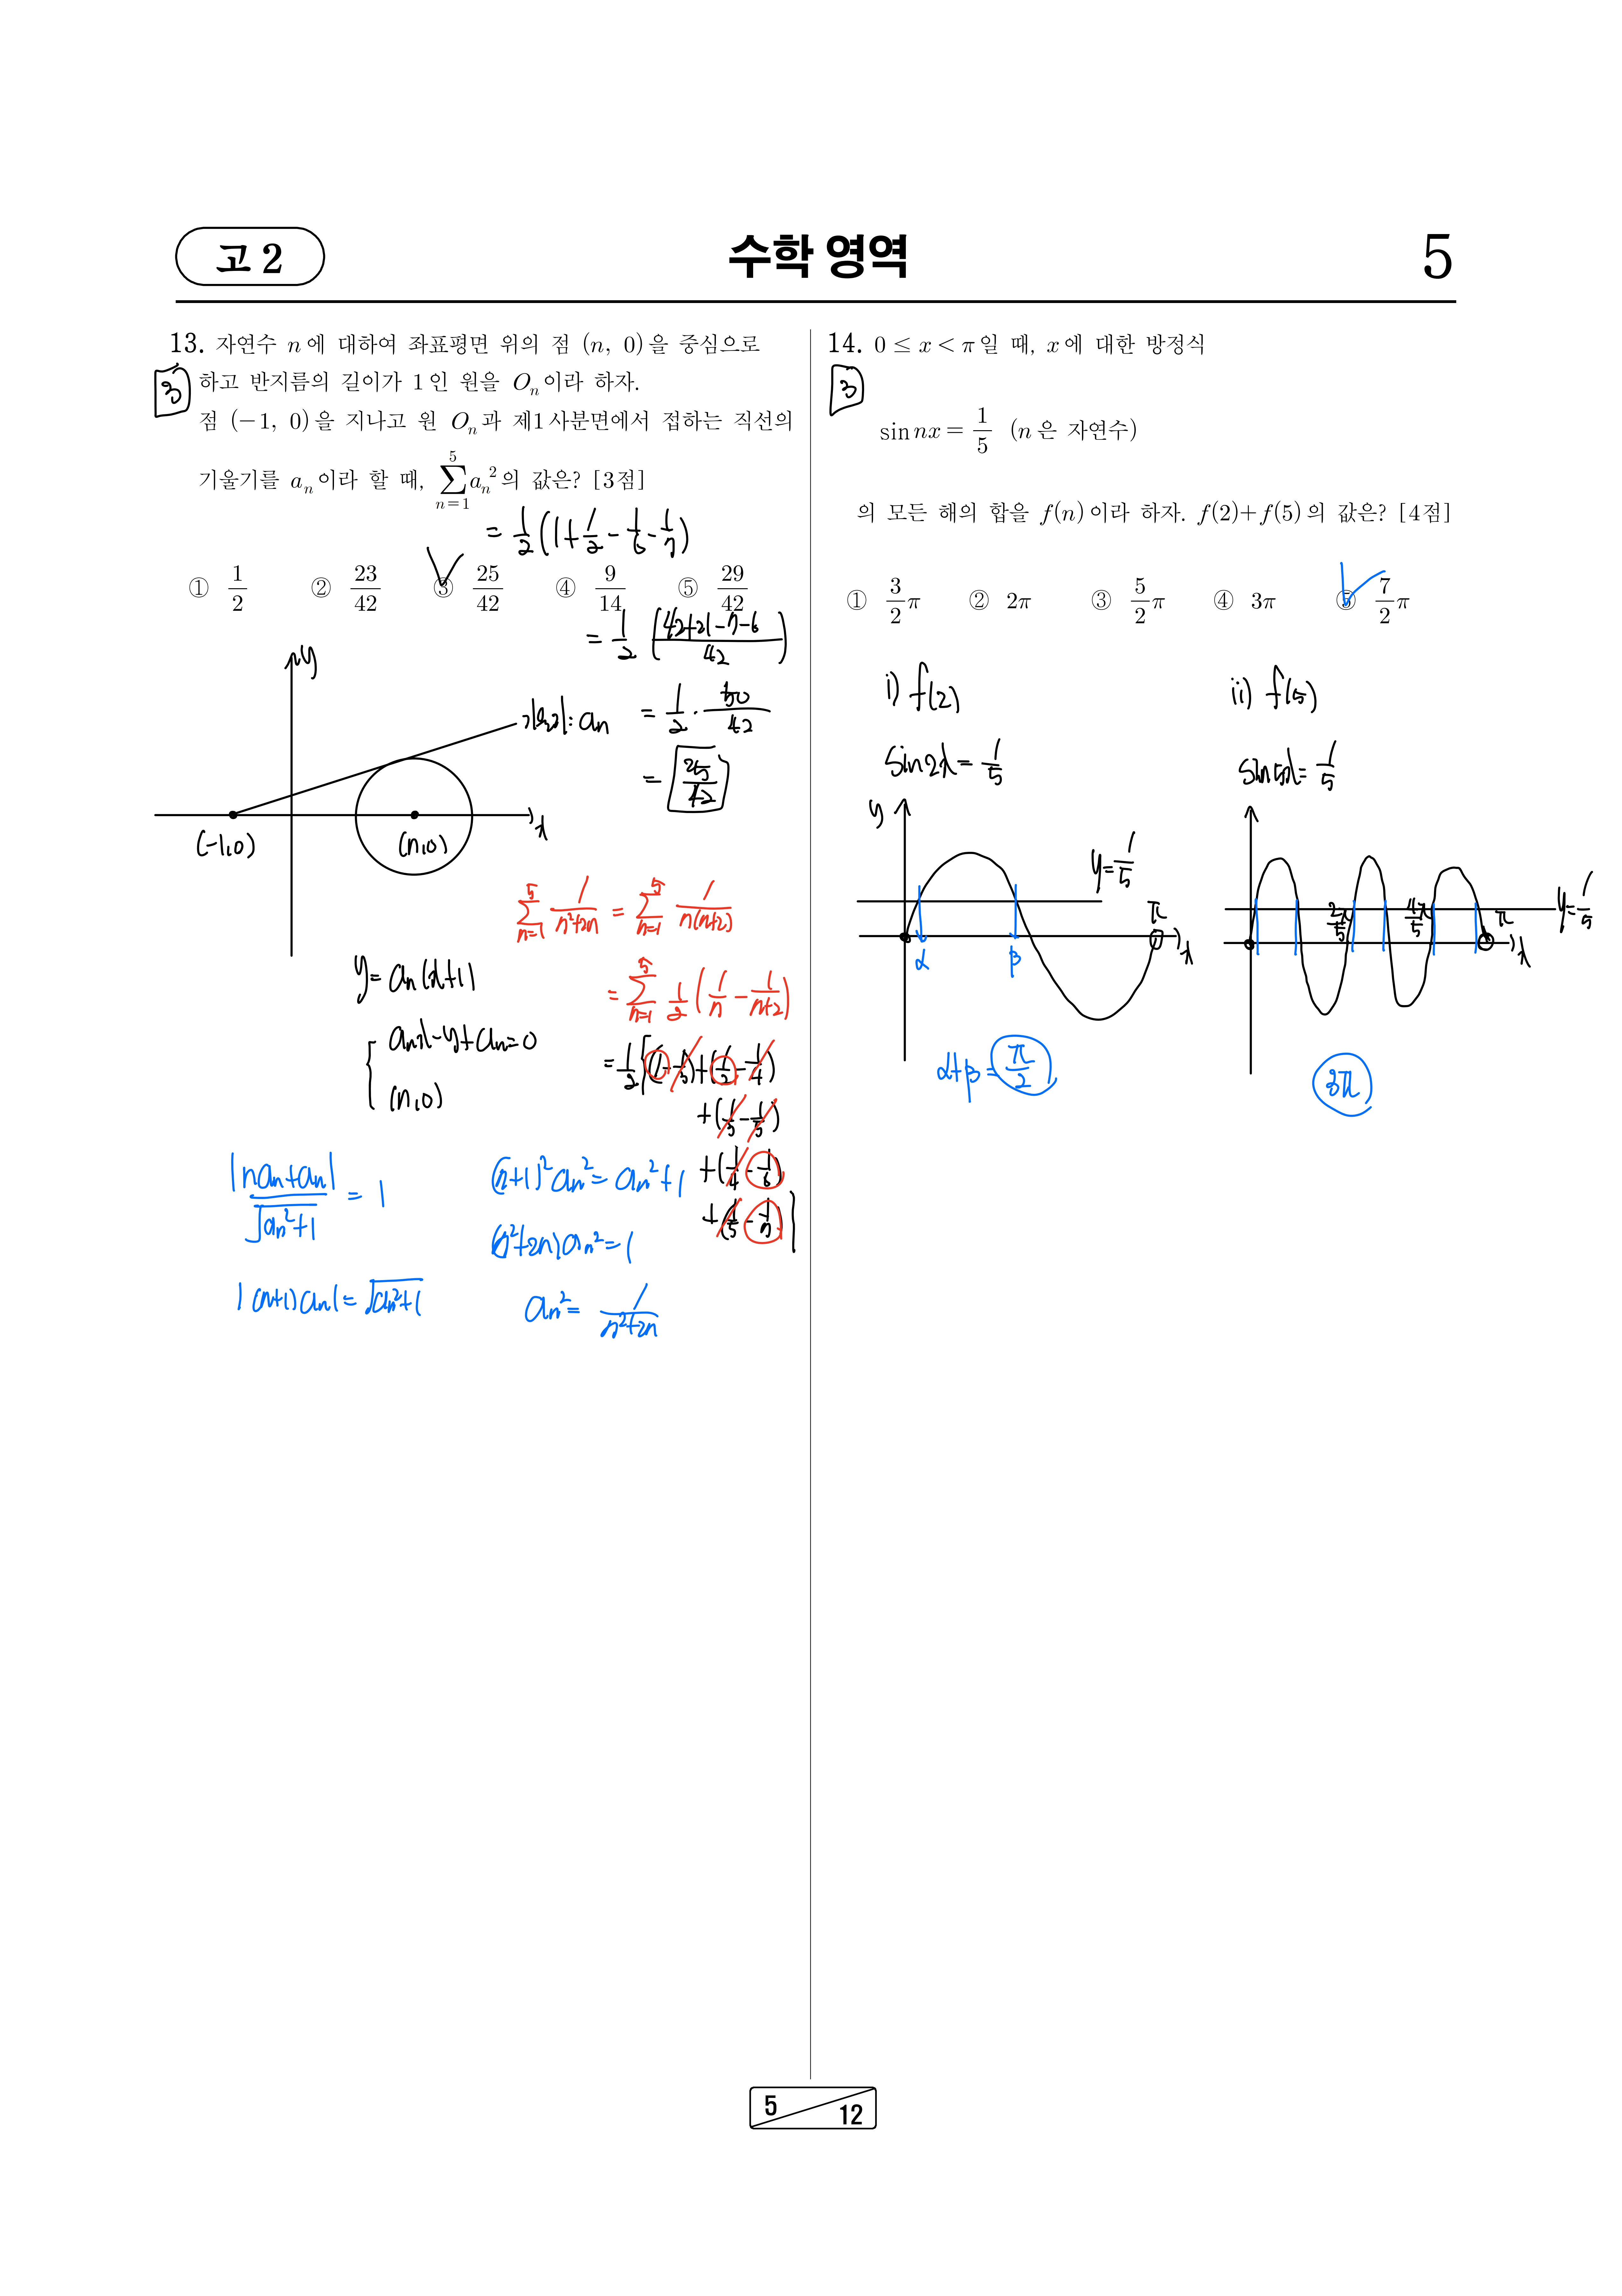 고 2
수학 영역
5
13. 자연수 n에 대하여 좌표평면 위의 점 (n, 0)을 중심으로
하고 반지름의 길이가 1인 원을 Oₙ이라 하자.
점 (−1, 0)을 지나고 원 Oₙ과 제1사분면에서 접하는 직선의
기울기를 aₙ이라 할 때, ∑_{n=1}^{5} aₙ²의 값은? [3점]
3
= 1/2 (1+1/2−1/6−1/7)
① 1/2 ② 23/42 ③ 25/42 ④ 9/14 ⑤ 29/42
= 1/2 ((42+21−7−6)/42)
= 1/2 · 50/42
= 25/42
y
기울기: aₙ
x
(−1,0)
(n,0)
∑_{n=1}^{5} 1/(n²+2n) = ∑_{n=1}^{5} 1/(n(n+2))
= ∑_{n=1}^{5} 1/2 (1/n − 1/(n+2))
= 1/2 {(1−1/3)+(1/2−1/4)
+(1/3−1/5)
+(1/4−1/6)
+(1/5−1/7)}
y=aₙ(x+1)
aₙx−y+aₙ=0
(n,0)
|naₙ+aₙ|/√(aₙ²+1) = 1
|(n+1)aₙ|=√(aₙ²+1)
(n+1)²aₙ²=aₙ²+1
(n²+2n)aₙ²=1
aₙ²= 1/(n²+2n)
14. 0 ≤ x < π일 때, x에 대한 방정식
3
sin nx = 1/5 (n은 자연수)
의 모든 해의 합을 f(n)이라 하자. f(2)+f(5)의 값은? [4점]
① 3/2 π ② 2π ③ 5/2 π ④ 3π ⑤ 7/2 π
i) f(2)
sin2x=1/5
y
y=1/5
π
x
α
β
α+β=π/2
ii) f(5)
sin5x=1/5
y=1/5
2/5π
4/5π
π
x
3π
5
12